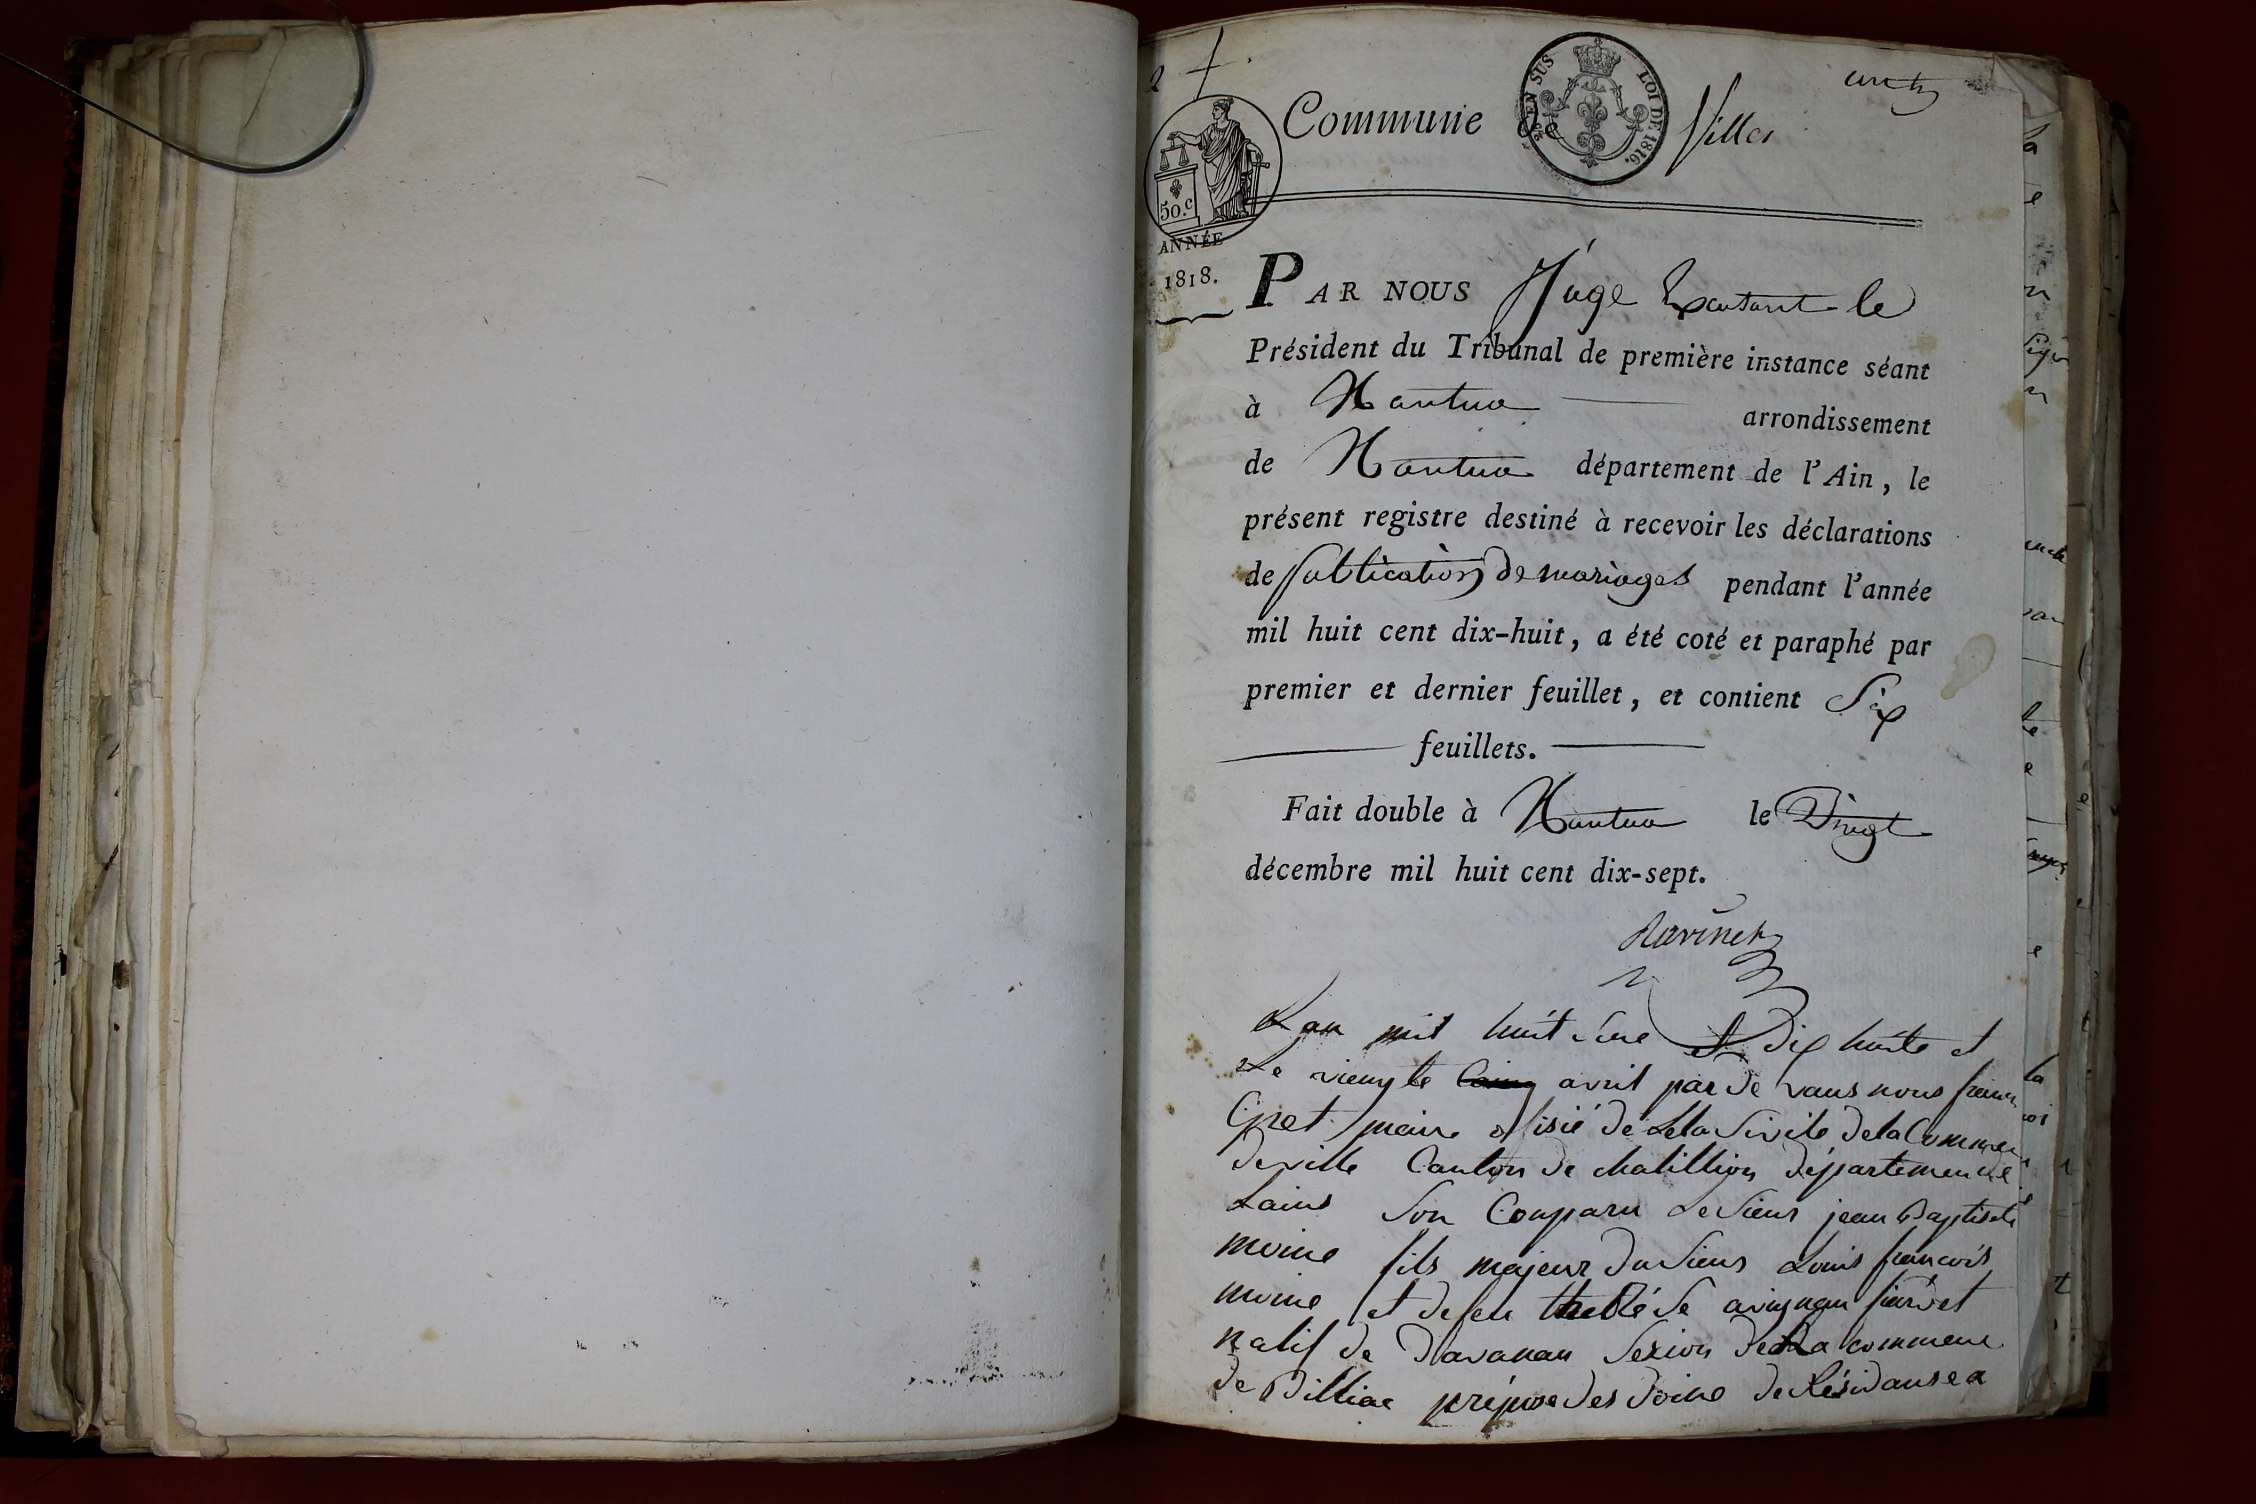 Commune de Villes
EN SUS
LOI DE 1816.
50.c
ANNÉE
1818.
PAR NOUS Juge Exertant le
Président du Tribunal de première instance séant
à Nantua arrondissement
de Nantua département de l'Ain, le
présent registre destiné à recevoir les déclarations
de publications de mariages pendant l'année
mil huit cent dix-huit, a été coté et paraphé par
premier et dernier feuillet, et contient Six
feuillets.
Fait double à Nantua le Vingt
décembre mil huit cent dix-sept.
Ravinet
Lan mil huit sene et dix huite et
Le viengte avril par de vans nous
Cpret maire ofisié de Leta Sivile de la Commene
de ville Canton de chatillion département de
Lains Son Conparu Le Sieur jean Baptiste
moine fils majeur du Sieur Louis francois
moine et defeu
natif de Davanau Sexion de La commene
de Billiac prépose des doine de Résidanse a